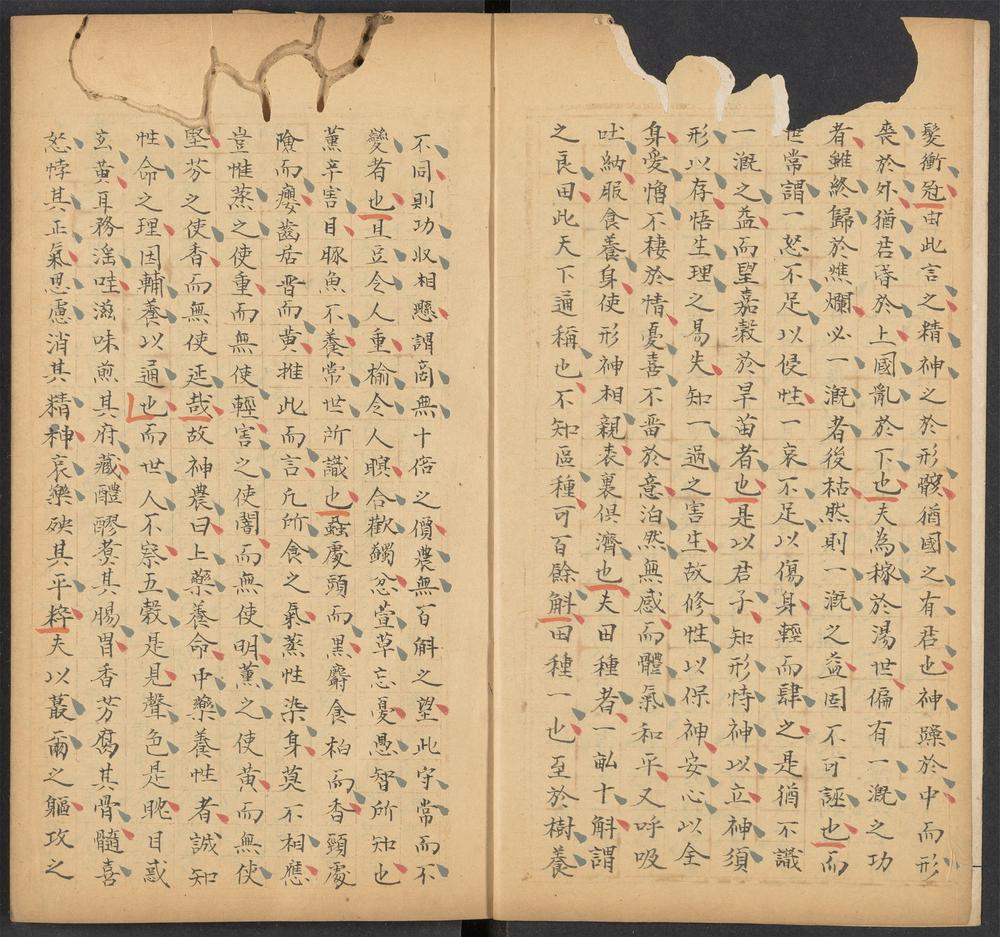 髮衝冠由此言之精神之於形骸猶國之有君也神躁於中而形
喪於外猶君昏於上國亂於下也夫為稼於湯世偏有一溉之功
者雖終歸於燋爛必一溉者後枯然則一溉之益固不可誣也而
世常謂一怒不足以侵性一哀不足以傷身輕而肆之是猶不識
一溉之益而望嘉穀於旱苗者也是以君子知形恃神以立神須
形以存悟生理之易失知一過之害生故修性以保神安心以全
身愛憎不棲於情憂喜不畱於意泊然無感而體氣和平又呼吸
吐納服食養身使形神相親表裏俱濟也夫田種者一畝十斛謂
之良田此天下通稱也不知區種可百餘斛田種一也至於樹養
不同則功收相懸謂商無十倍之價農無百斛之望此守常而不
變者也且豆令人重榆令人瞑合歡蠲忿萱草忘憂愚智所知也
薰辛害目豚魚不養常世所識也蝨處頭而黑麝食柏而香頸處
險而癭齒居晉而黃推此而言凡所食之氣蒸性染身莫不相應
豈惟蒸之使重而無使輕害之使闇而無使明薰之使黃而無使
堅芬之使香而無使延哉故神農曰上藥養命中藥養性者誠知
性命之理因輔養以通也而世人不察五穀是見聲色是耽目惑
玄黃耳務淫哇滋味煎其府藏醴醪煑其腸胃香芳腐其骨髓喜
怒悖其正氣思慮消其精神哀樂殃其平粹夫以蕞爾之軀攻之